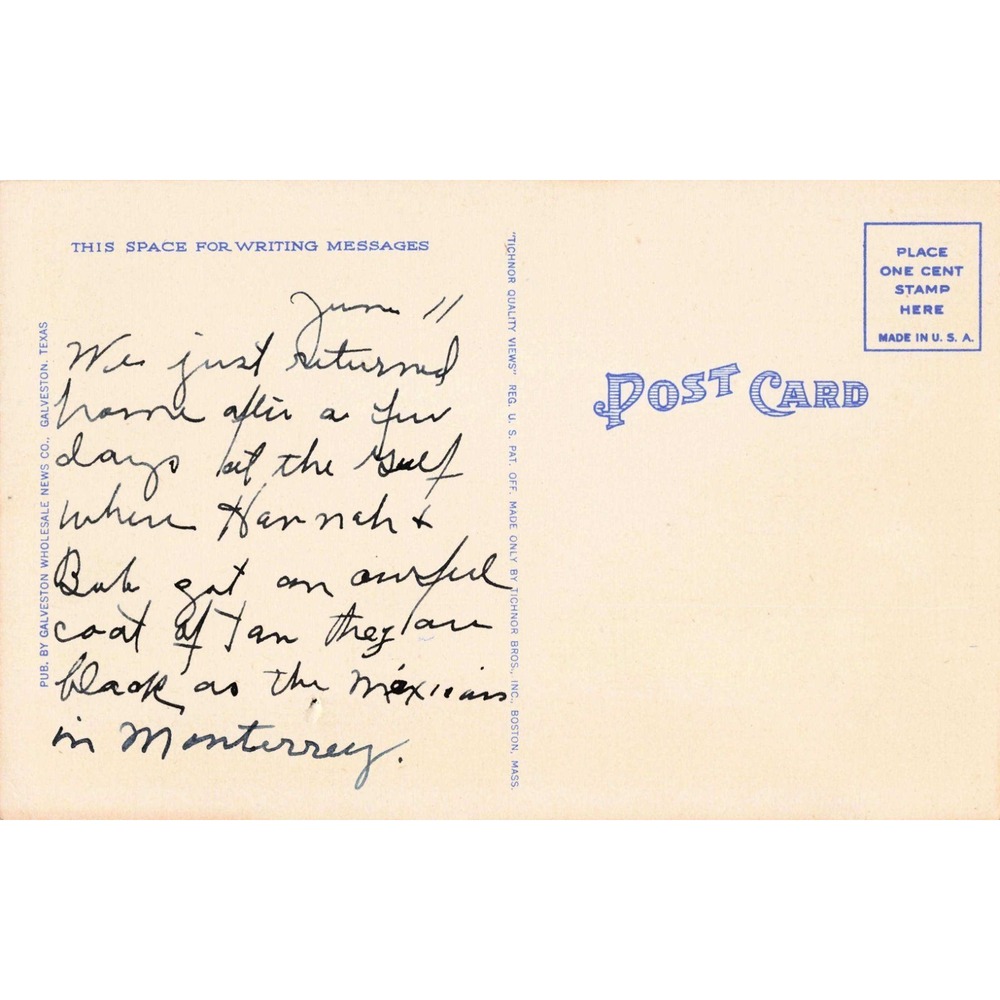 THIS SPACE FOR WRITING MESSAGES
June 11
We just returned
home after a few
days at the Gulf
where Hannah +
Bob got an awful
coat of Tan they are
black as the Mexicans
in Monterrey.
PUB. BY GALVESTON WHOLESALE NEWS CO., GALVESTON, TEXAS
"TICHNOR QUALITY VIEWS" REG. U. S. PAT. OFF. MADE ONLY BY TICHNOR BROS., INC., BOSTON, MASS.
POST CARD
PLACE
ONE CENT
STAMP
HERE
MADE IN U. S. A.